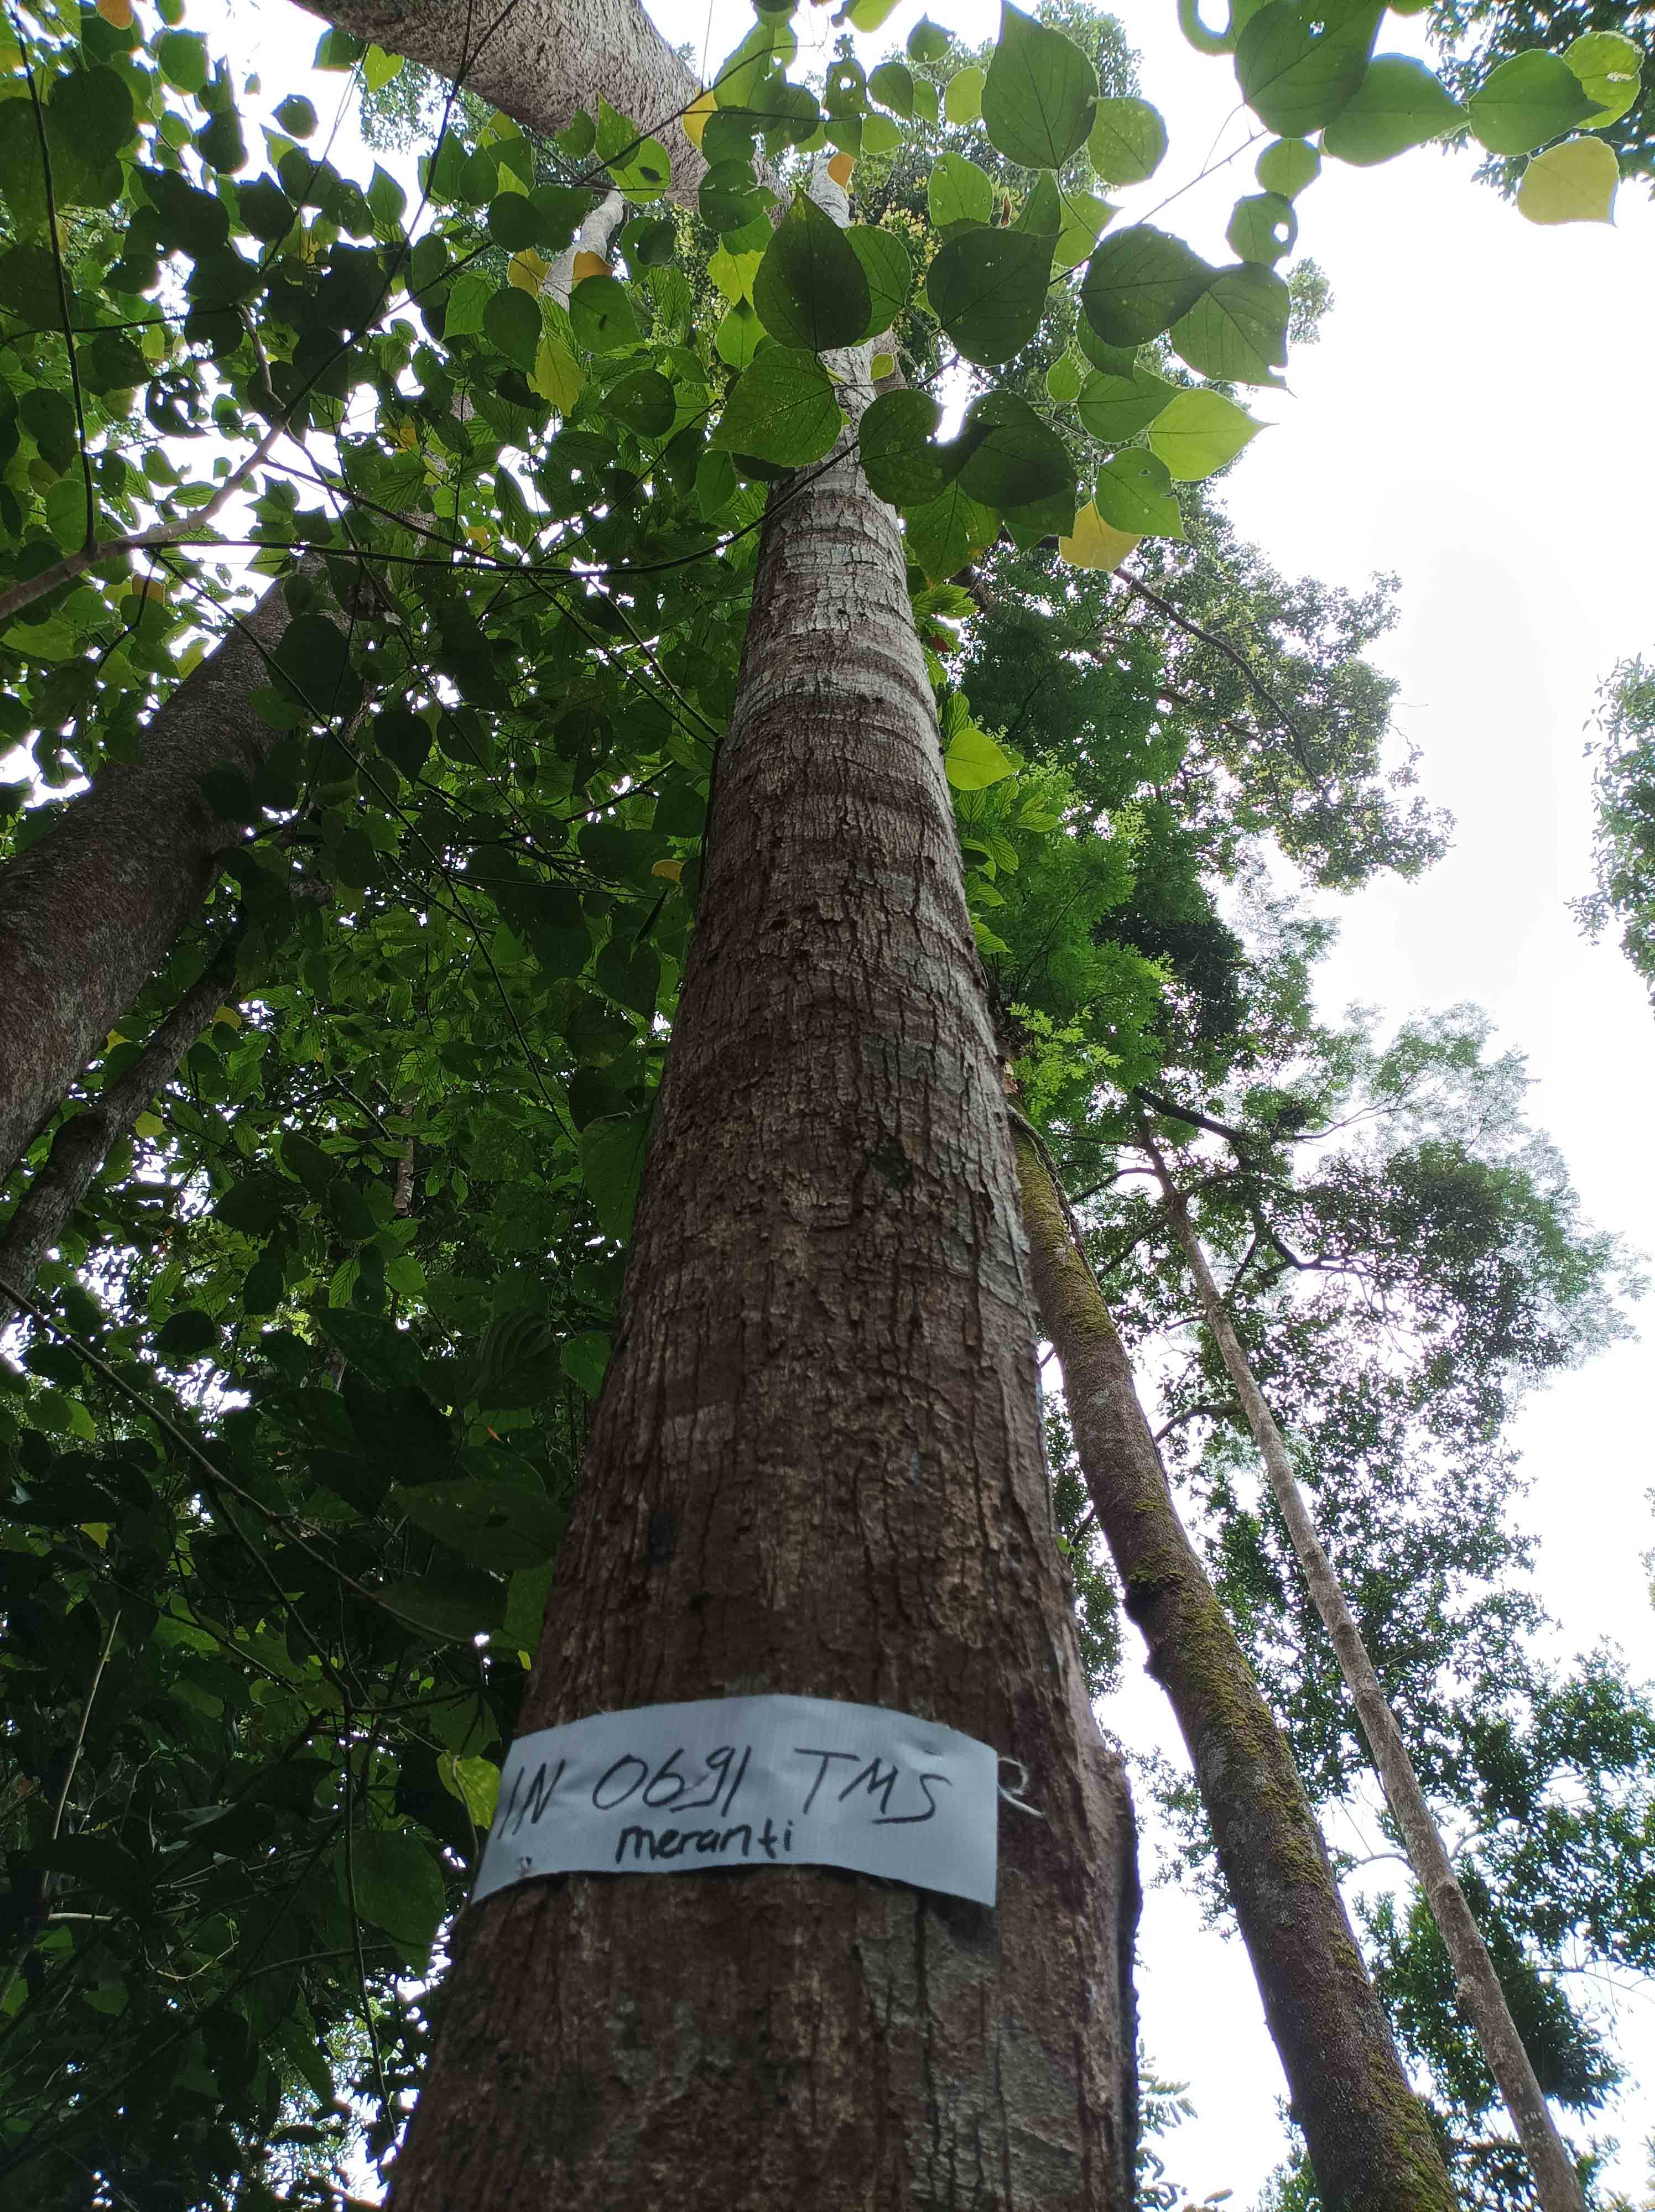 IN 0691 TMS
meranti